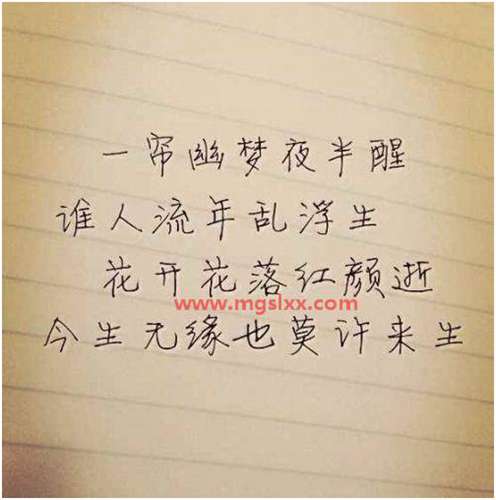 一帘幽梦夜半醒
谁人流年乱浮生
花开花落红颜逝
www.mgslxx.com
今生无缘也莫许来生